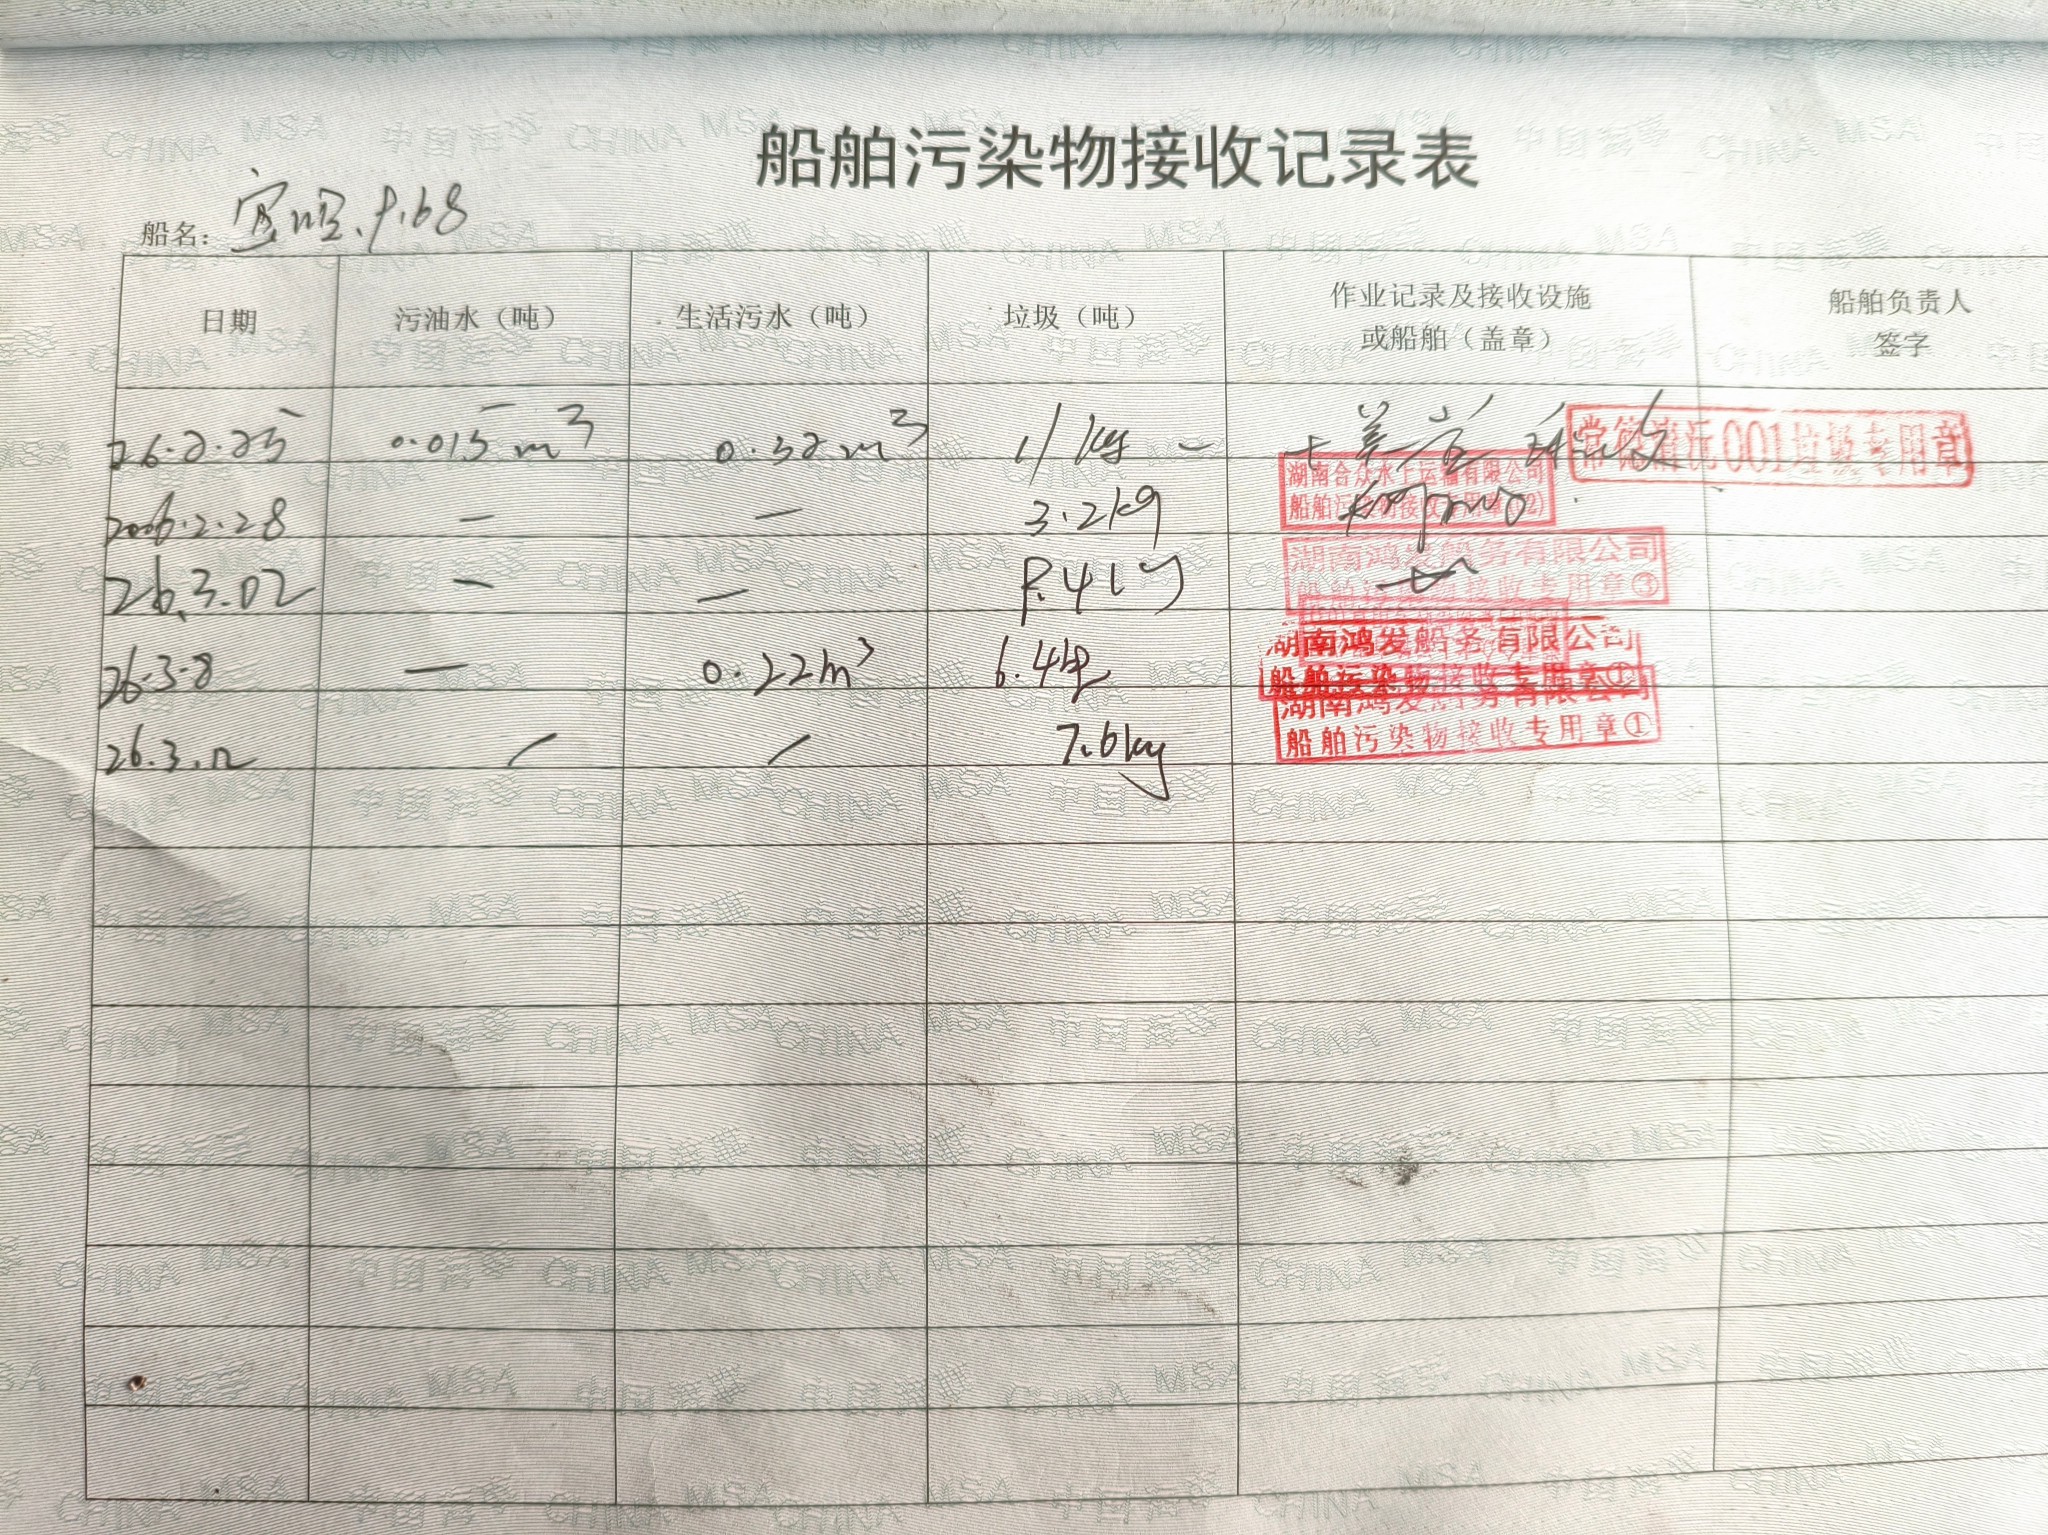 船舶污染物接收记录表
船名：
日期 污油水（吨） 生活污水（吨） 垃圾（吨） 作业记录及接收设施或船舶（盖章） 船舶负责人签字
26.2.25 0.015 m³ 0.32 m³ 11 kg
常德清沅001垃圾专用章
2026.2.28 — — 3.2kg
湖南合众水上运输有限公司
船舶污染物接收专用章(02)
26.3.02 — —
湖南鸿发船务有限公司
船舶污染物接收专用章③
26.3.8 — 0.22m³ 6.4kg
湖南鸿发船务有限公司
船舶污染物接收专用章①
26.3.12 / / 7.6kg
湖南鸿发船务有限公司
船舶污染物接收专用章①
中国海事 CHINA MSA